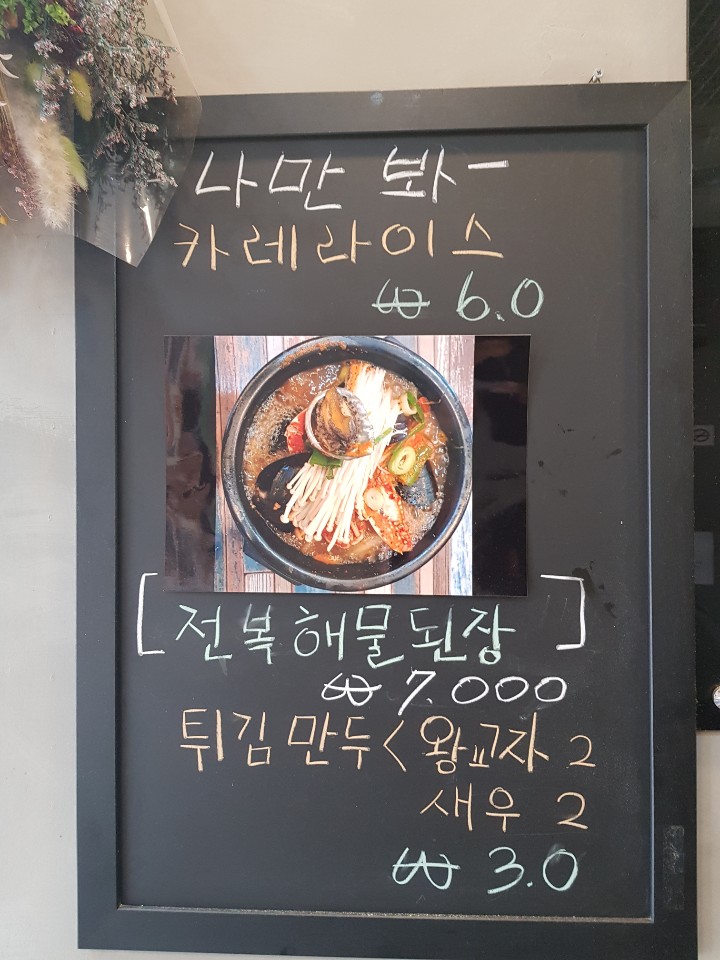 나만 봐-
카레라이스
₩ 6.0
[전복해물된장]
₩ 7.000
튀김만두 < 왕교자 2
새우 2
₩ 3.0